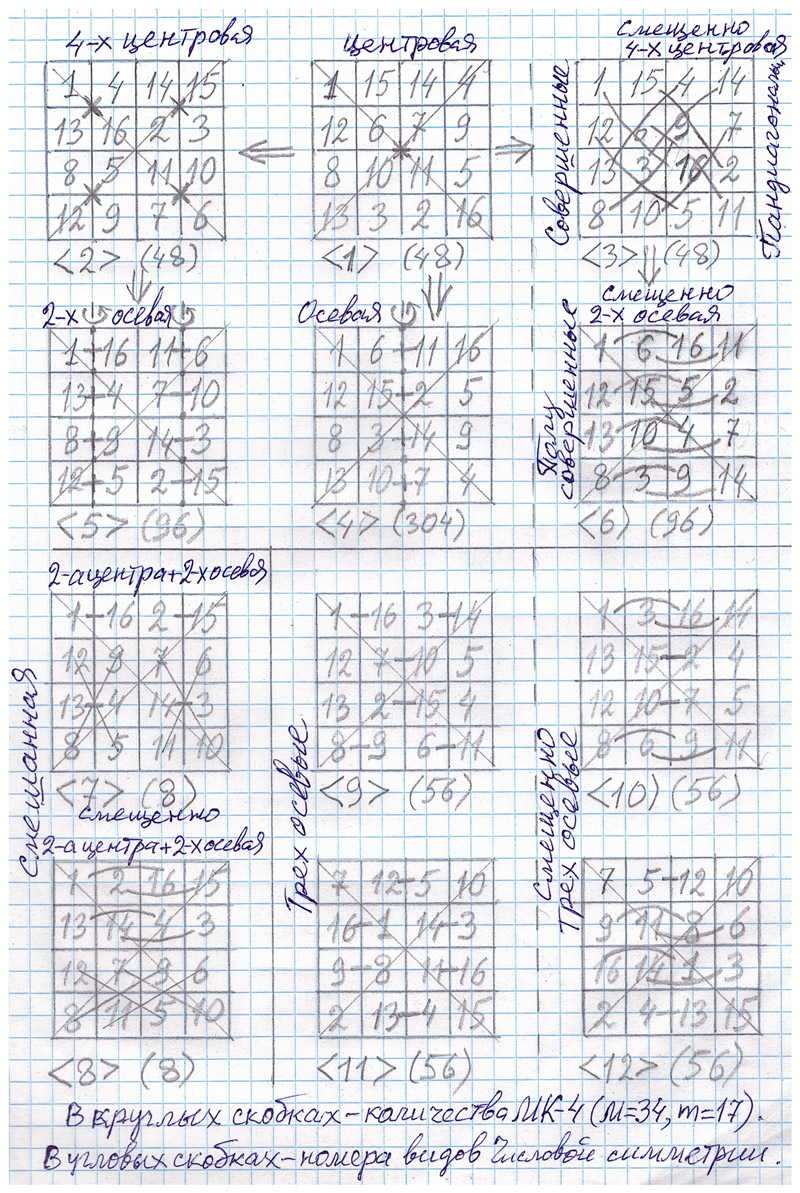 4-х центровая
1 4 14 15
13 16 2 3
8 5 11 10
12 9 7 6
<2> (48)
центровая
1 15 14 4
12 6 7 9
8 10 11 5
13 3 2 16
<1> (48)
смещенно
4-х центровая
Совершенные
1 15 4 14
12 6 9 7
13 3 16 2
8 10 5 11
Пандиагональн.
<3> (48)
2-х осевая
1-16 11-6
13-4 7-10
8-9 14-3
12-5 2-15
<5> (96)
Осевая
1 6-11 16
12 15-2 5
8 3-14 9
13 10-7 4
<4> (304)
смещенно
2-х осевая
Полу
совершенные
1 6 16 11
12 15 5 2
13 10 4 7
8 3 9 14
<6) (96)
Смешанная
2-а центра+2-х осевая
1-16 2-15
12 9 7 6
13-4 14-3
8 5 11 10
<7> (8)
смещенно
2-а центра+2-х осевая
1 2 16 15
13 14 4 3
12 7 9 6
8 11 5 10
<8> (8)
Трех осевые
1-16 3-14
12 7-10 5
13 2-15 4
8-9 6-11
<9> (56)
7 12-5 10
16-1 14-3
9-8 11-16
2 13-4 15
<11> (56)
Смещенно
Трех осевые
1 3 16 14
13 15-2 4
12 10-7 5
8 6 9 11
<10) (56)
7 5-12 10
9 11 8 6
16 14 1 3
2 4-13 15
<12> (56)
В круглых скобках-количества МК-4 (М=34, m=17).
В угловых скобках-номера видов Числовой симметрии.